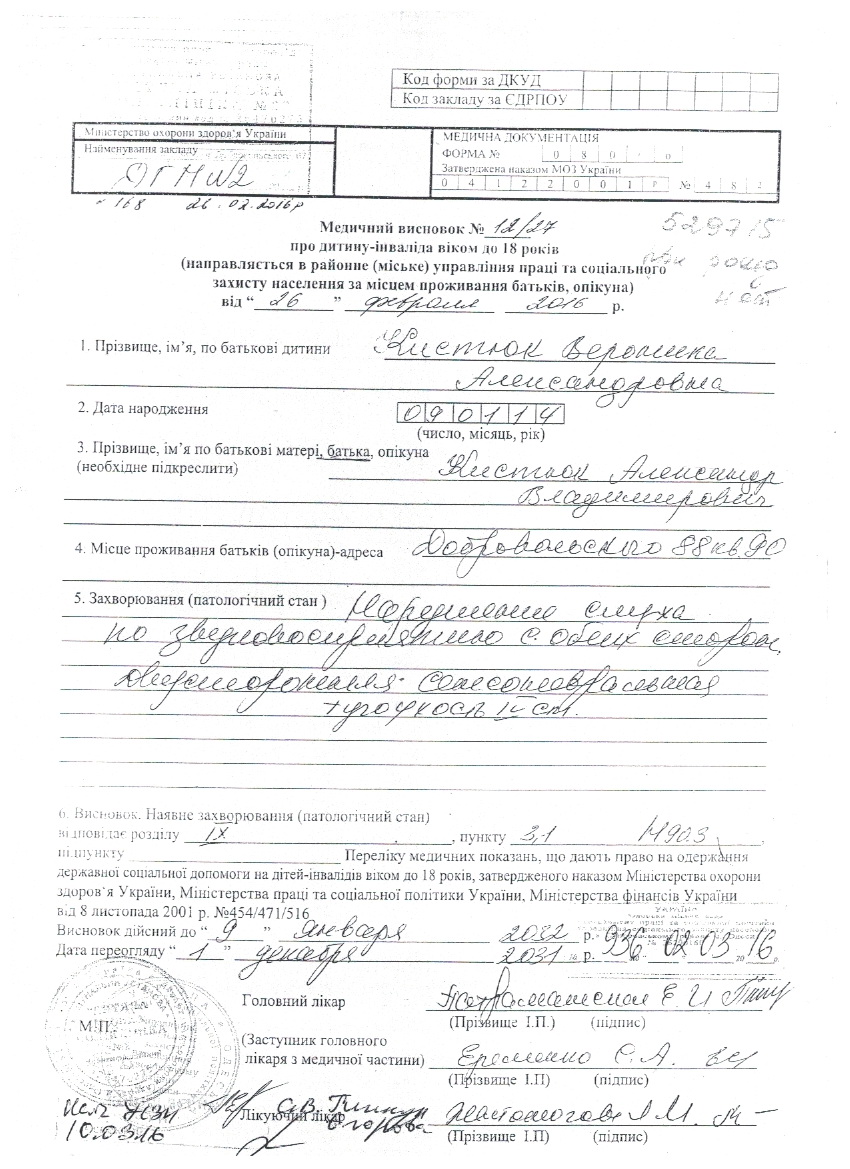 Код форми за ДКУД
Код закладу за ЄДРПОУ
Міністерство охорони здоров'я України
Найменування закладу
МЕДИЧНА ДОКУМЕНТАЦІЯ
ФОРМА № 0 8 0
Затверджена наказом МОЗ України
0 4 1 2 2 0 0 1 р № 4 8 2
168 26.02.2016р
Медичний висновок № 12/27
529715
про дитину-інваліда віком до 18 років
(направляється в районне (міське) управління праці та соціального
захисту населення за місцем проживання батьків, опікуна)
від “ 26 ” февраля 2016 р.
1. Прізвище, ім'я, по батькові дитини Кистюк Вероника
Александровна
2. Дата народження 0 9 0 1 1 4
(число, місяць, рік)
3. Прізвище, ім'я по батькові матері, батька, опікуна
(необхідне підкреслити) Кистюк Александр
Владимирович
4. Місце проживання батьків (опікуна)-адреса Добровольского 88 кв. 90
5. Захворювання (патологічний стан ) Нарушение слуха
по звуковосприятию с обеих сторон,
двусторонняя сенсоневральная
тугоухость IV ст.
6. Висновок. Наявне захворювання (патологічний стан)
відповідає розділу IX , пункту 3,1 H90.3 ,
підпункту Переліку медичних показань, що дають право на одержання
державної соціальної допомоги на дітей-інвалідів віком до 18 років, затвердженого наказом Міністерства охорони
здоров'я України, Міністерства праці та соціальної політики України, Міністерства фінансів України
від 8 листопада 2001 р. №454/471/516
УКРАЇНА
Висновок дійсний до “ 9 ” января 2032 р. 936 02 03 2016
Дата переогляду “ 1 ” декабря 2031 р.
Головний лікар Е. И
(Прізвище І.П.) (підпис)
М.П.
(Заступник головного
лікаря з медичної частини) Еременко С. А.
(Прізвище І.П) (підпис)
Лікуючий лікар
10.03.16
(Прізвище І.П) (підпис)